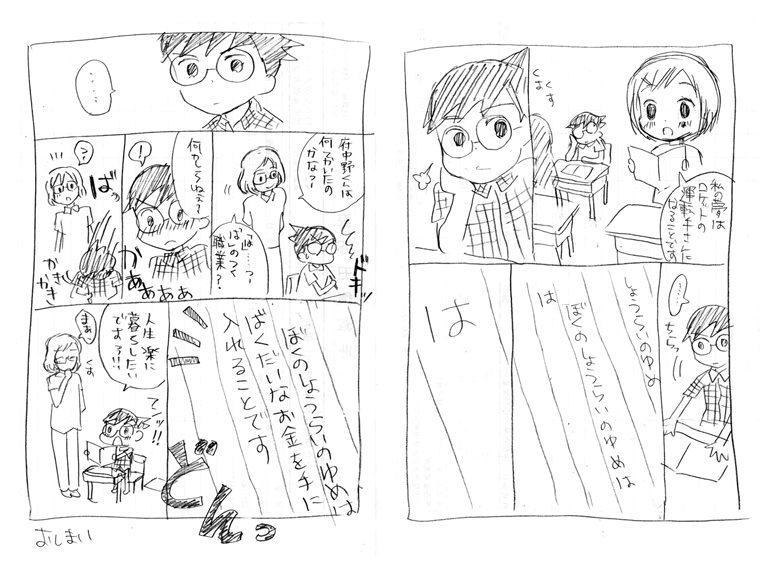 私の夢は
ロケットの
運転手さんに
なることです
くすくす
……
ちらっ
しょうらいのゆめ
ぼくのしょうらいのゆめは
は
は
……
府中野くんは
何をかいたの
かな?
ドキッ
は……っ
「は」のつく
職業?
!
かあぁぁぁぁ
?
ばっ
かきかき
かき
ぼくのしょうらいのゆめは
ばくだいなお金を手に
入れることです
どんっ
人生楽に
暮らしたい
です!!!
まぁ
くす
おしまい